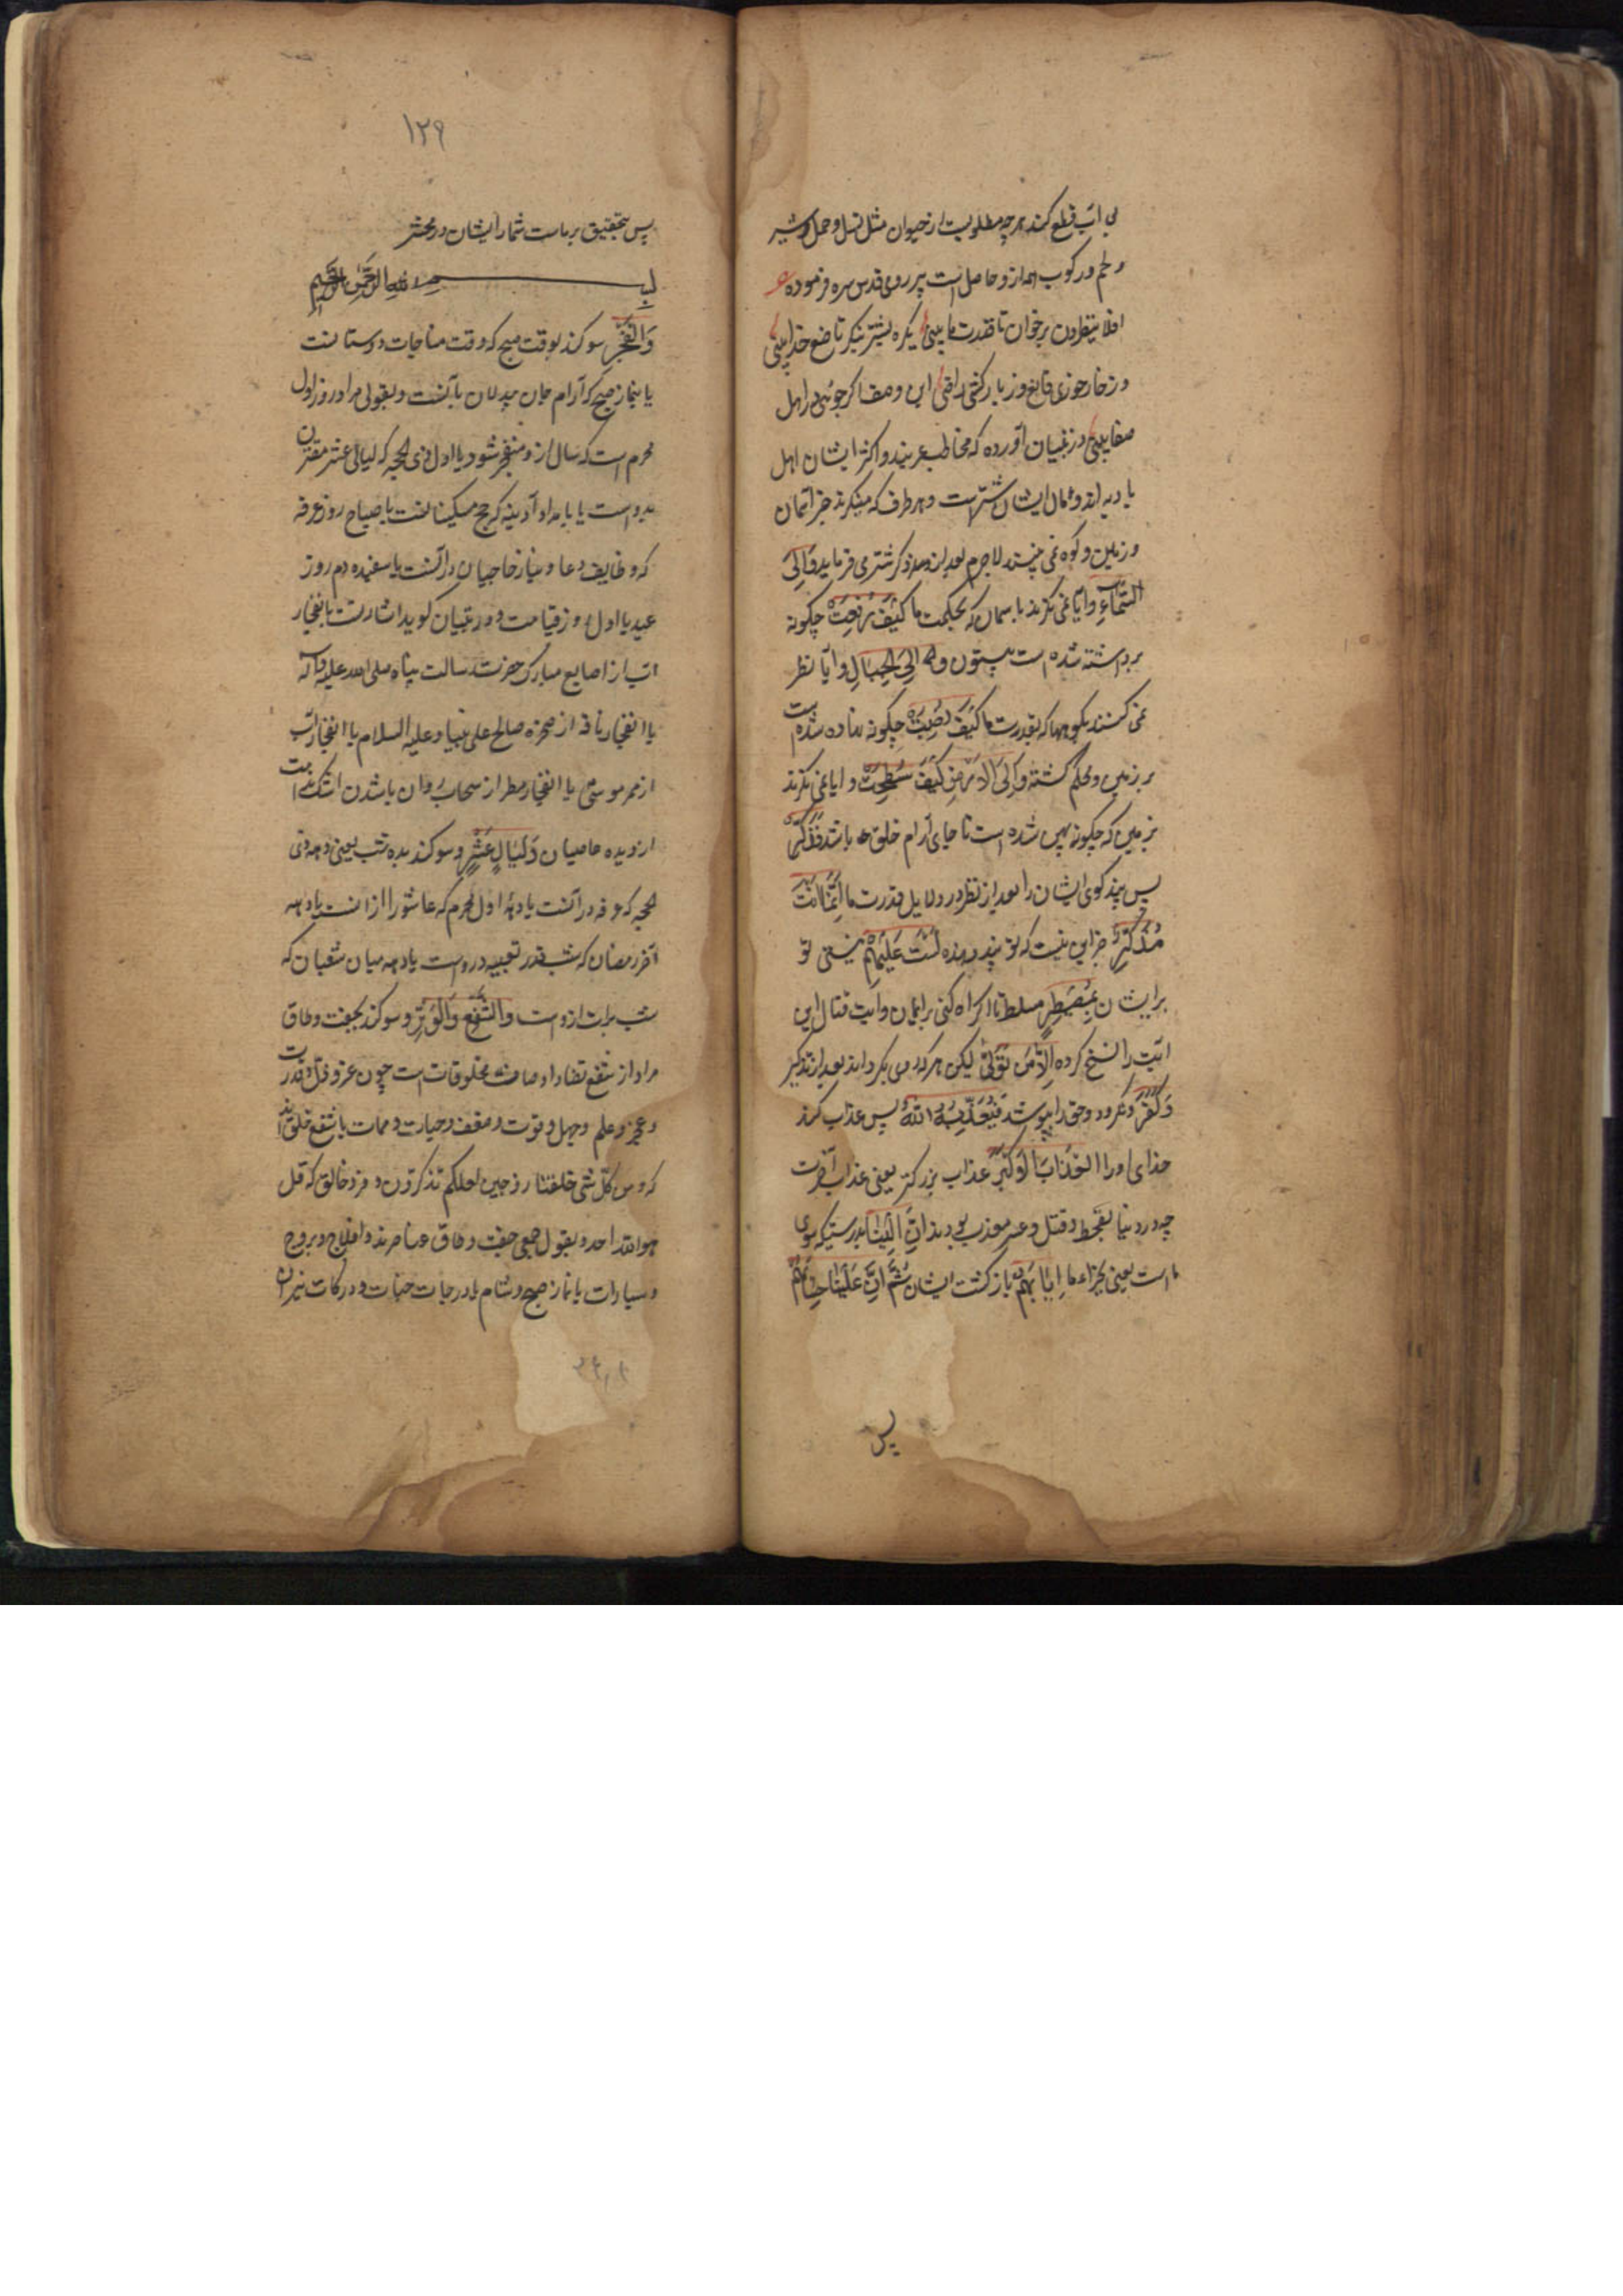 بی آب قطع کند هر چه مطلوبست از حیوان مثل نسل و حمل و شیر
و لحم و رکوب همه از و حاصل است پیر رومی قدس سره فرموده ع
افلا ینظرون برخوان تا قدرت ما بینی یکره بشتر بنگر تا صنع خدا بینی
در خار خوری قانع وز بارکشی راضی این وصف اگر جوئی در اهل
صفا بینی در تبیان آورده که مخاطب عربند و اکثر ایشان اهل
بادیه اند و مال ایشان شتر است و هر طرف که مینگرند جز آسمان
و زمین و کوه نمی بینند لاجرم بعد از ذکر شتر می فرماید وَاِلَی
السَّمَآءِ و آیا نمی نگرند بآسمان که بحکمت ما کَیْفَ رُفِعَتْ چگونه
برداشته شده است بیستون وَاِلَی الْجِبَالِ و آیا نظر
نمی کنند بکوهها که بقدرت ما کَیْفَ نُصِبَتْ چگونه نهاده شده است
بر زمین و محکم گشته وَاِلَی الْاَرْضِ کَیْفَ سُطِحَتْ و ایا نمی نگرند
بزمین که چگونه پهن شده است تا جای آرام خلق باشد فَذَکِّرْ
پس پند گوی ایشان را بعد از نظر در دلایل قدرت ما اِنَّمَا اَنْتَ
مُذَکِّرٌ جز این نیست که تو پند دهنده لَسْتَ عَلَیْهِمْ نیستی تو
بر ایشان بِمُصَیْطِرٍ مسلط تا اکراه کنی بر ایمان و آیت قتال این
آیت را نسخ کرده اِلَّا مَنْ تَوَلّٰی لیکن هر که روی بگرداند بعد از تذکیر
وَکَفَرَ و نگرود و حق را بپوشد فَیُعَذِّبُهُ اللّٰهُ پس عذاب کند
خدای او را الْعَذَابَ الْاَکْبَرَ عذاب بزرگتر یعنی عذاب آخرت
چه در دنیا بقحط و قتل و غیر معذب بودند اِنَّ اِلَیْنَا بدرستیکه بسوی
ما است یعنی بجزاء ما اِیَابَهُمْ بازگشت ایشان ثُمَّ اِنَّ عَلَیْنَا حِسَابَهُمْ
پس
۱۲۹
پس بتحقیق بر ماست شمار ایشان در محشر
بسم الله الرحمن الرحیم
وَالْفَجْرِ سوگند بوقت صبح که وقت مناجات دوستانست
یا بنماز صبح که آرام جان بیدلان بآنست و بقولی مراد روز اول
محرم است که سال ازو منفجر شود یا اول ذی الحجه که لیالی عشر مقترن
بدو است یا بامداد آدینه که حج مسکینانست یا صباح روز عرفه
که وظایف دعا و نیاز حاجیان در آنست یا سفیده دم روز
عید یا اول روز قیامت و در تبیان گوید اشارتست بانفجار
آب از اصابع مبارک حضرت رسالت پناه صلی الله علیه وآله
یا انفجار ناقه از صخره صالح علی نبینا و علیه السلام یا انفجار آب
از حجر موسی یا انفجار مطر از سحاب و آن باشدن اشک ندامت
از دیده عاصیان وَلَیَالٍ عَشْرٍ و سوگند بده شب یعنی دهه ذی
الحجه که عرفه در آنست یا دهۀ اول محرم که عاشورا از آنست یا دهه
آخر رمضان که شب قدر تعبیه در وست یا دهه میان شعبان که
شب برات ازوست وَالشَّفْعِ وَالْوَتْرِ و سوگند بجفت و طاق
مراد از شفع تضاد اوصاف مخلوقات است چون عز و ذل و قدرت
و عجز و علم و جهل و قوت و ضعف و حیات و ممات یا شفع خلق اند
که و من کل شی خلقنا زوجین لعلکم تذکرون و فرد خالق که قل
هو الله احد و بقول جمعی جفت و طاق عناصرند و افلاک و بروج
و سیارات یا نماز صبح و شام یا درجات جنات و درکات نیران